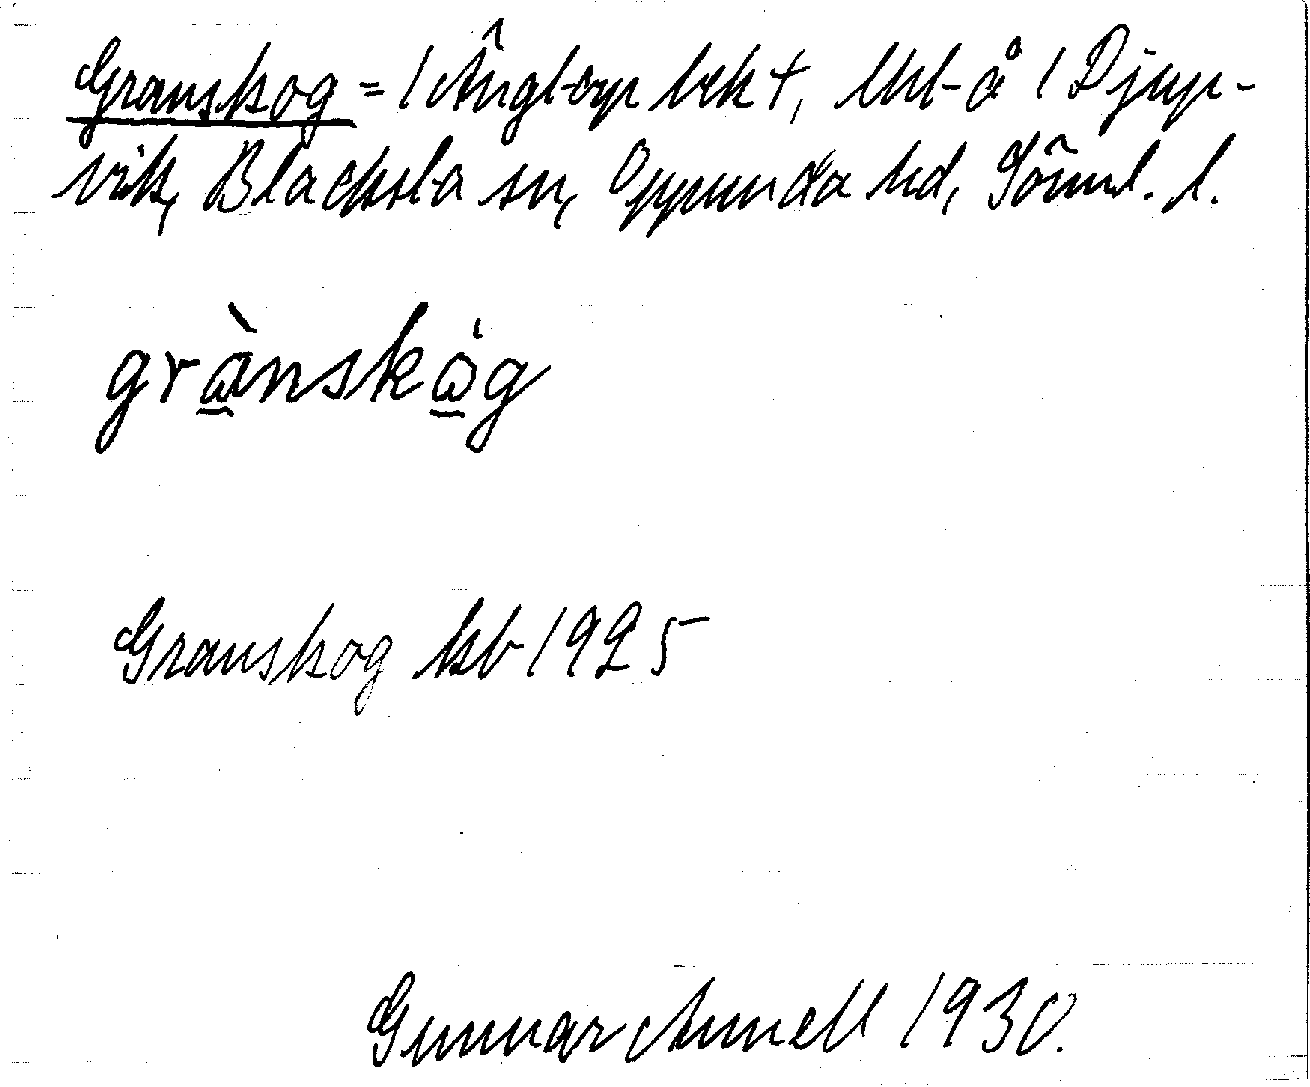 Granskog = 1 Ängtorp bek +, lht å 1 Djup-
vik, Blacksta sn, Oppunda hd, Söml. l.
grànskɷ̀g
Granskog kb 1925
Gunnar Amnell 1930.